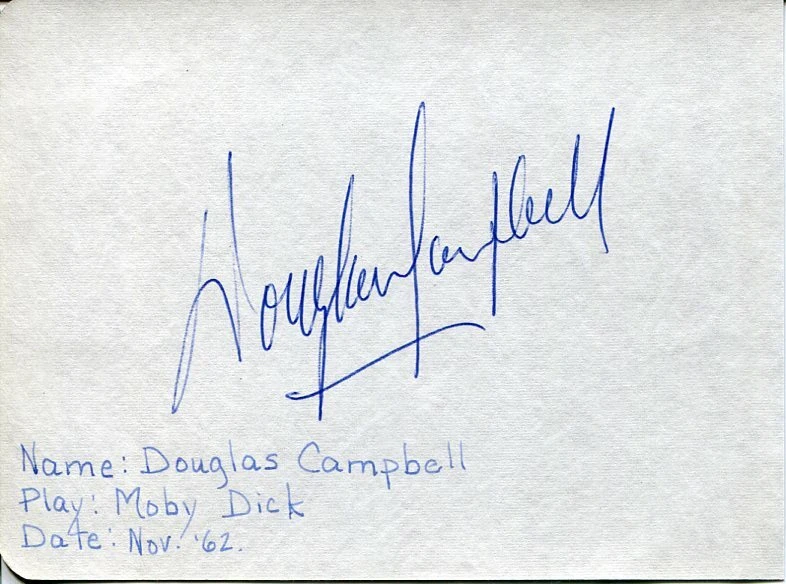 Douglas Campbell
Name: Douglas Campbell
Play: Moby Dick
Date: Nov. '62.